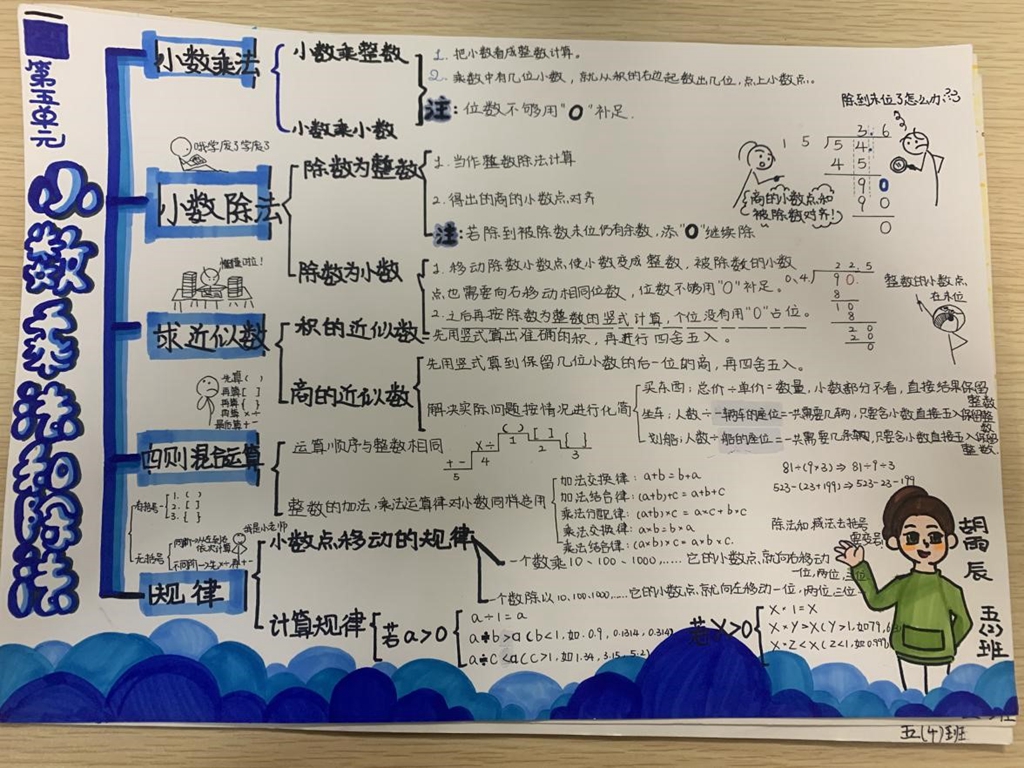 第五单元
小数乘法和除法
小数乘法
小数乘整数
小数乘小数
1. 把小数看成整数计算。
2. 乘数中有几位小数，就从积的右边起数出几位，点上小数点。
注：位数不够用"0"补足.
除到末位了怎么办???
哦学废了学废了
小数除法
除数为整数
1. 当作整数除法计算
2. 得出的商的小数点对齐
注：若除到被除数末位仍有余数，添"0"继续除
商的小数点和
被除数对齐!
3.6
15 54.
45
90
90
0
除数为小数
1. 移动除数小数点使小数变成整数，被除数的小数
点也需要向右移动相同位数，位数不够用"0"补足。
2. 之后再按除数为整数的竖式计算，个位没有用"0"占位。
22.5
0.4 90.
8
10
8
20
20
0
整数的小数点
在末位
求近似数
积的近似数
先用竖式算出准确的积，再进行四舍五入。
商的近似数
先用竖式算到保留几位小数的后一位的商，再四舍五入。
解决实际问题按情况进行化简
买东西：总价÷单价=数量，小数部分不看，直接结果保留
整数
坐车：人数÷一辆车的座位=一共需要几辆，只要名小数直接五入保留整
数
划船：人数÷船的座位=一共需要几条船，只要名小数直接五入保留
整数.
先算( )
再算[ ]
再算{ }
再算×÷
最后算+-
四则混合运算
运算顺序与整数相同
( ) 1
[ ] 2
{ } 3
×÷ 4
+- 5
整数的加法，乘法运算律对小数同样适用
加法交换律：a+b=b+a
加法结合律：(a+b)+c=a+b+c
乘法分配律：(a+b)×c=a×c+b×c
乘法交换律：a×b=b×a
乘法结合律：(a×b)×c=a×b×c.
81÷(9×3)⇒81÷9÷3
523-(23+199)⇒523-23-199
除法和减法去括号
要变号
有括号
1. ( )
2. [ ]
3. { }
无括号
我是小老师
规律
小数点移动的规律
一个数乘10、100、1000,……它的小数点，就向右移动
一位，两位，三位
一个数除以10.100.1000,……它的小数点，就向左移动一位，两位，三位
计算规律
若a>0
a÷1=a
a÷b>a(b<1,如0.9,0.1314,0.314)
a÷c<a(c>1,如1.34,3.15,5.2)
若X>0
X·1=X
X·Y>X(Y>1,如
X·Z<X(Z<1,如0.99
胡雨辰
五(2)班
五(4)班